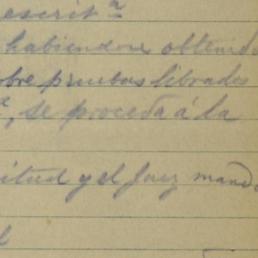 escritª
habiendose obtenido
obre pruebas librados
ª, se proceda á la
itud y el Juez mand
l